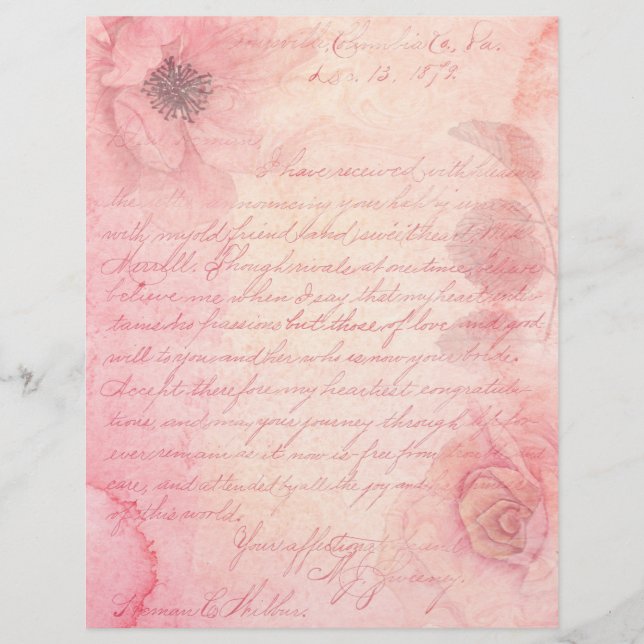 Columbia Co., Pa.
Dec. 13, 1879.
I have received with pleasure
the letter announcing your happy union
with my old friend and sweetheart, Miss
Merrill. Though rivals at one time,
believe me when I say that my heart enter-
tains no passions but those of love and good
will to you and her who is now your bride.
Accept therefore my heartiest congratula-
tions, and may your journey through life for-
ever remain as it now is free from and
care, and attended by all the joy and
of this world.
Your affectionate
Sweeney.
C. Wilbur.